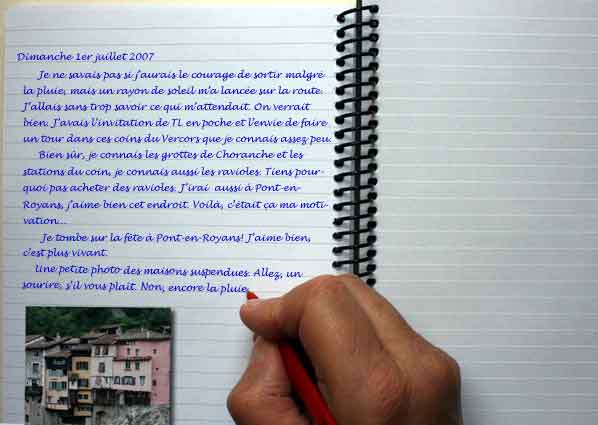 Dimanche 1er juillet 2007
Je ne savais pas si j'aurais le courage de sortir malgré
la pluie, mais un rayon de soleil m'a lancée sur la route.
J'allais sans trop savoir ce qui m'attendait. On verrait
bien. J'avais l'invitation de TL en poche et l'envie de faire
un tour dans ces coins du Vercors que je connais assez peu.
Bien sûr, je connais les grottes de Choranche et les
stations du coin, je connais aussi les ravioles. Tiens pour-
quoi pas acheter des ravioles. J'irai aussi à Pont-en-
Royans, j'aime bien cet endroit. Voilà, c'était ça ma moti-
vation...
Je tombe sur la fête à Pont-en-Royans! J'aime bien,
c'est plus vivant.
Une petite photo des maisons suspendues. Allez, un
sourire, s'il vous plaît. Non, encore la pluie